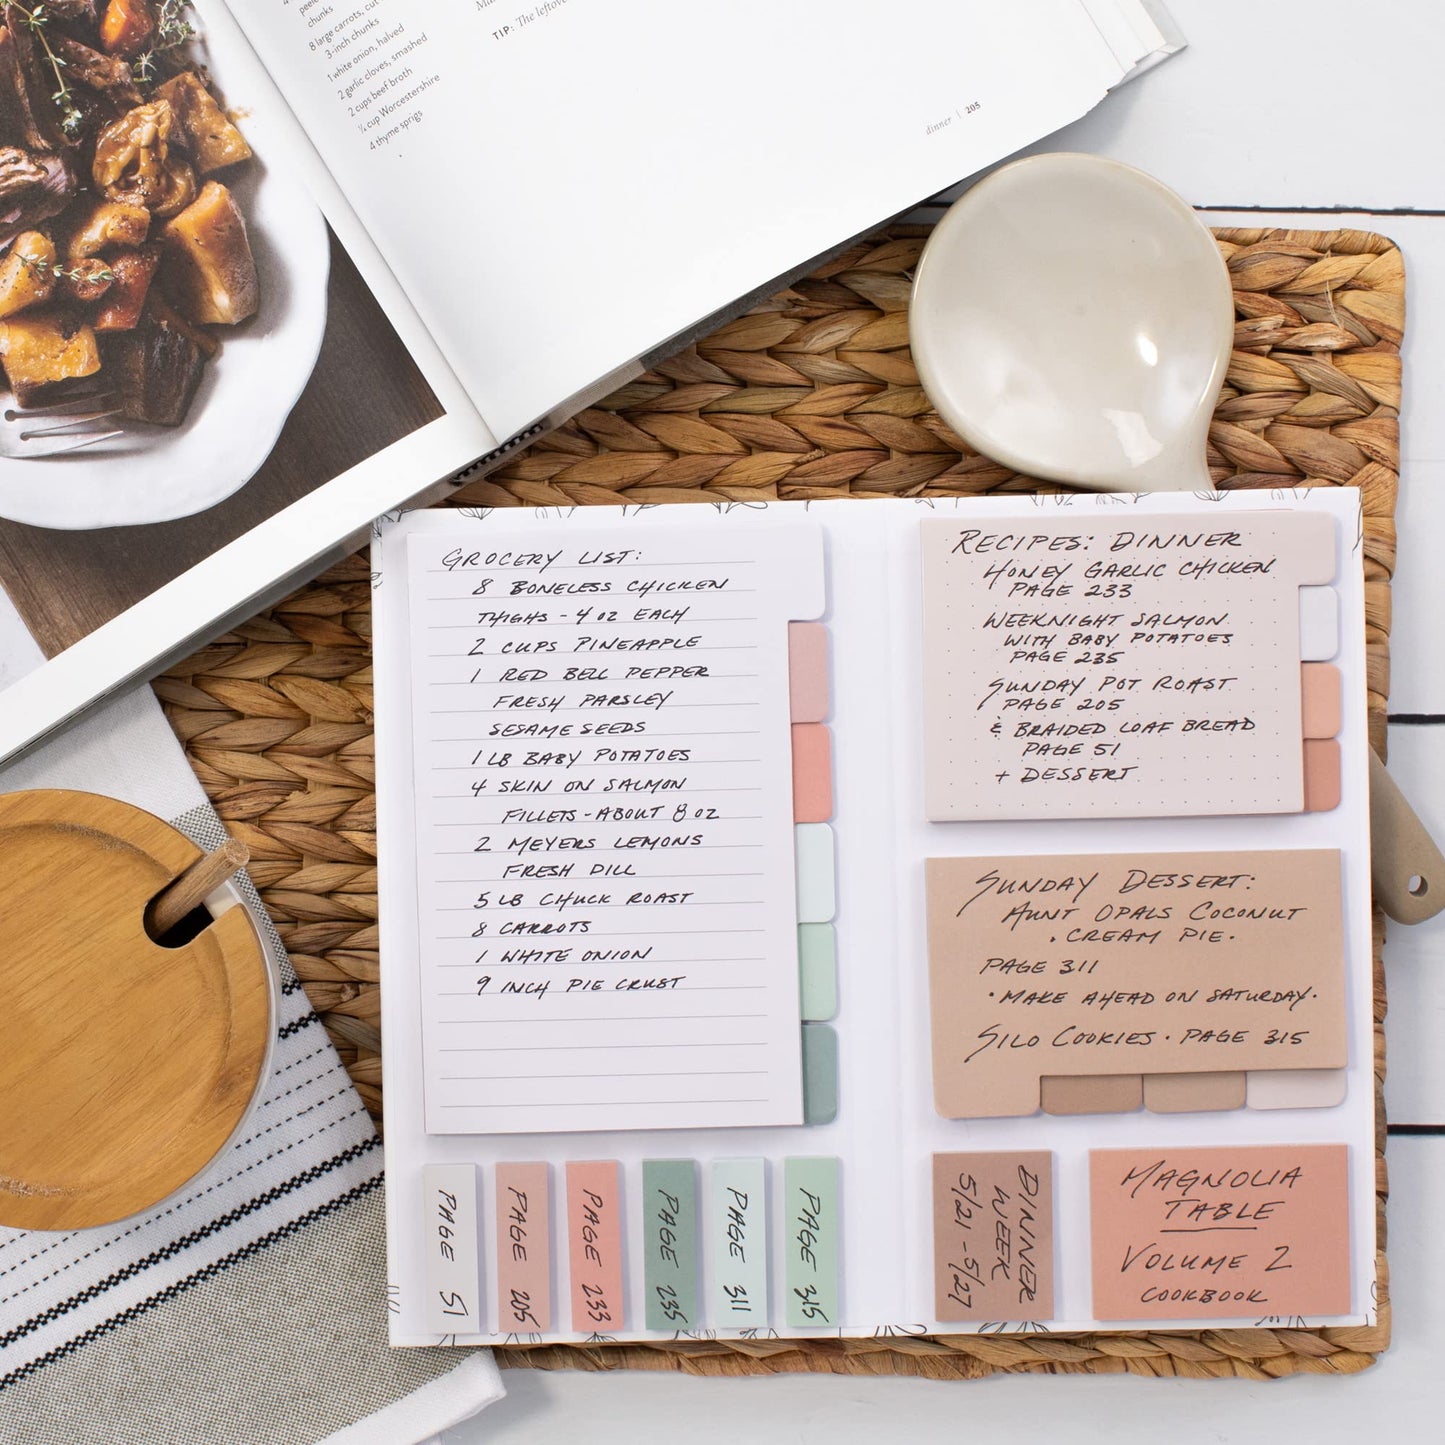 peele
chunks
8 large carrots, cut
3-inch chunks
1 white onion, halved
2 garlic cloves, smashed
2 cups beef broth
¼ cup Worcestershire
4 thyme sprigs
TIP: The leftove
dinner | 205
GROCERY LIST:
8 BONELESS CHICKEN
THIGHS - 4 OZ EACH
2 CUPS PINEAPPLE
1 RED BELL PEPPER
FRESH PARSLEY
SESAME SEEDS
1 LB BABY POTATOES
4 SKIN ON SALMON
FILLETS - ABOUT 8 OZ
2 MEYERS LEMONS
FRESH DILL
5 LB CHUCK ROAST
8 CARROTS
1 WHITE ONION
9 INCH PIE CRUST
RECIPES: DINNER
HONEY GARLIC CHICKEN
PAGE 233
WEEKNIGHT SALMON
WITH BABY POTATOES
PAGE 235
SUNDAY POT ROAST
PAGE 205
& BRAIDED LOAF BREAD
PAGE 51
+ DESSERT
SUNDAY DESSERT:
AUNT OPALS COCONUT
· CREAM PIE ·
PAGE 311
· MAKE AHEAD ON SATURDAY ·
SILO COOKIES · PAGE 315
PAGE 51
PAGE 205
PAGE 233
PAGE 235
PAGE 311
PAGE 315
DINNER
WEEK
5/21 - 5/27
MAGNOLIA
TABLE
VOLUME 2
COOKBOOK